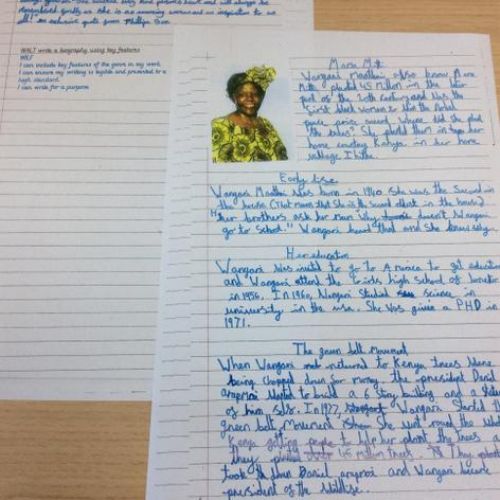 all! An exclusive quote from
WALT write a biography using key features
WILF
I can include key features of the genre in my work.
I can ensure my writing is legible and presented to a high standard.
I can write for a purpose.
Mama Miti
Wangari Maathai also know Mama
Miti planted 45 million in the later
part of the 20th century and the
first black women to win the Nobel
peace prize award. Where did she plant
the trees? She planted them in
home country Kenya in her home
village Ihithe.
Early lise
Wangari Maathai was born in 1940. She was the second in
the house (That means that she is the second eldest in the house)
"her brothers ask her mum "Why doesn't Wangari
go to school." Wangari heard that and she
Her education
Wangari was invited to go to America to get education
and Wangari attend the Girls high school of
in 1956. In 1960, Wangari studied science in
university in the usa. She was given a PHD in
1971.
The green belt Movement
When Wangari returned to Kenya trees were
being chopped down for money. the president Daniel
wanted to build a 6 story building and a statue
of him self. In 1977, Wangari started the
green belt Movement. She went round the
Kenya getting people to help her plant the trees
They planted over 45 million trees. They
took down Daniel and Wangari became
president of the